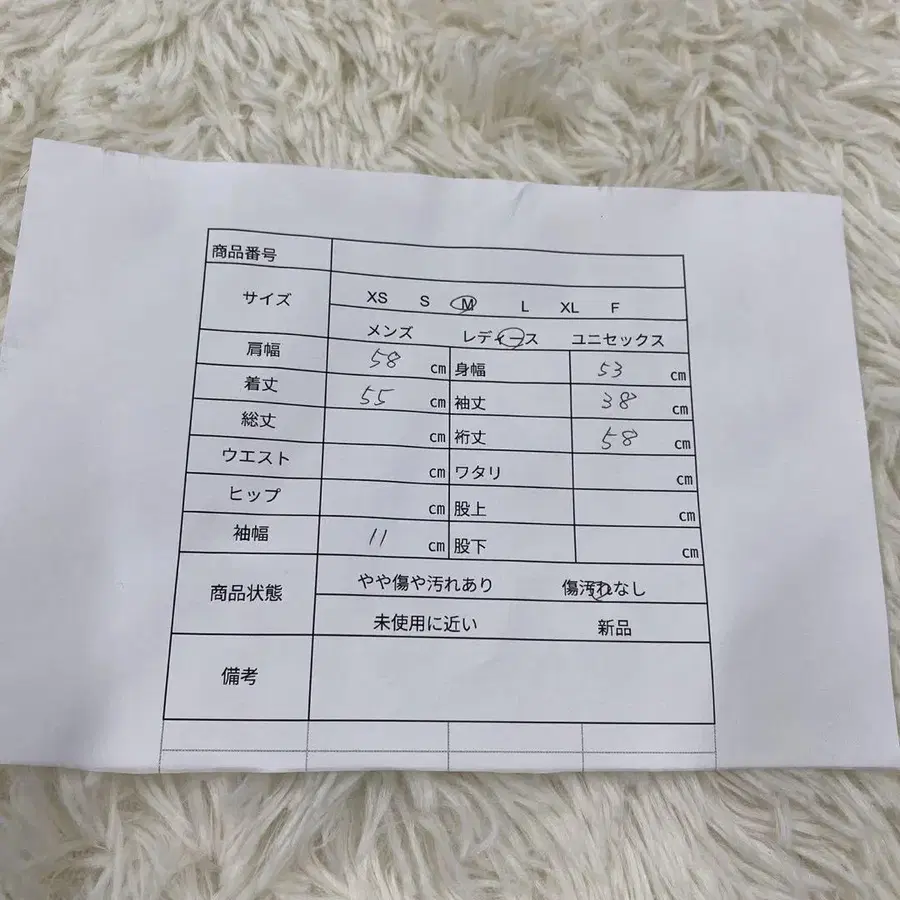 商品番号
サイズ XS S M L XL F
メンズ レディース ユニセックス
肩幅 58 cm 身幅 53 cm
着丈 55 cm 袖丈 38 cm
総丈 cm 裄丈 58 cm
ウエスト cm ワタリ cm
ヒップ cm 股上 cm
袖幅 11 cm 股下 cm
商品状態 やや傷や汚れあり 傷汚れなし
未使用に近い 新品
備考